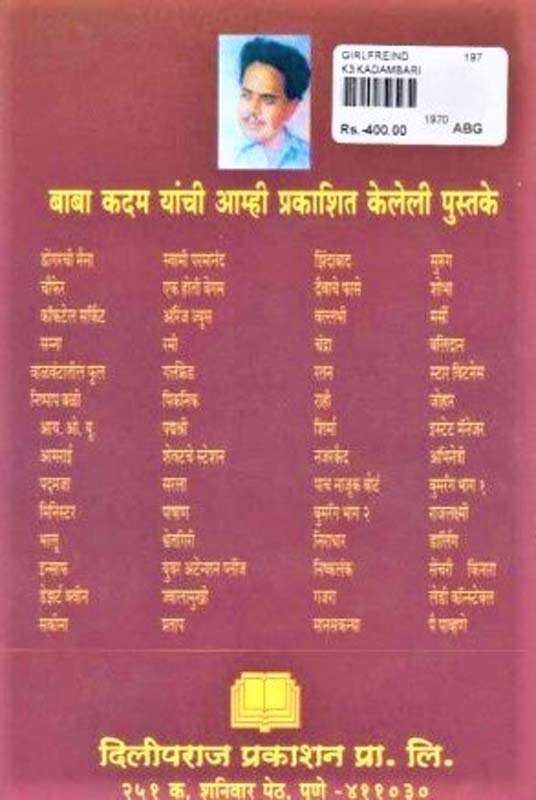 GIRLFREIND 197
K3 KADAMBARI
1970
Rs.-400.00 ABG
बाबा कदम यांची आम्ही प्रकाशित केलेली पुस्तके
डोंगरची मैना स्वामी परमानंद झिंदाबाद सुरुंग
चौफेर एक होती बेगम देवाचे फासे शोधा
कॉकटेल सर्किट ऑरेंज ज्यूस वल्लभी
चंद्रा बलिदान
वाळवंटातील फूल गर्लफ्रेंड रतन स्टार विटनेस
निष्पाप बळी पिकनिक राही जोहार
आय. ओ. यू. पद्मश्री शिर्मा इस्टेट मॅनेजर
आमराई शेवटचे स्टेशन नजरकैद अभिनेत्री
पद्मजा सरला पाच नाजूक बोटं बुमरँग भाग १
मिनिस्टर पाषाण बुमरँग भाग २ राजलक्ष्मी
भालू निराधार डार्लिंग
इन्साफ युवर अटेन्शन प्लीज निष्कलंक सेंचरी किनारा
डेझर्ट क्वीन ज्वालामुखी गजरा लेडी कॉन्स्टेबल
सकीना प्रताप मानसकन्या पै पाव्हणे
दिलीपराज प्रकाशन प्रा. लि.
२५१ क, शनिवार पेठ, पुणे -४११०३०